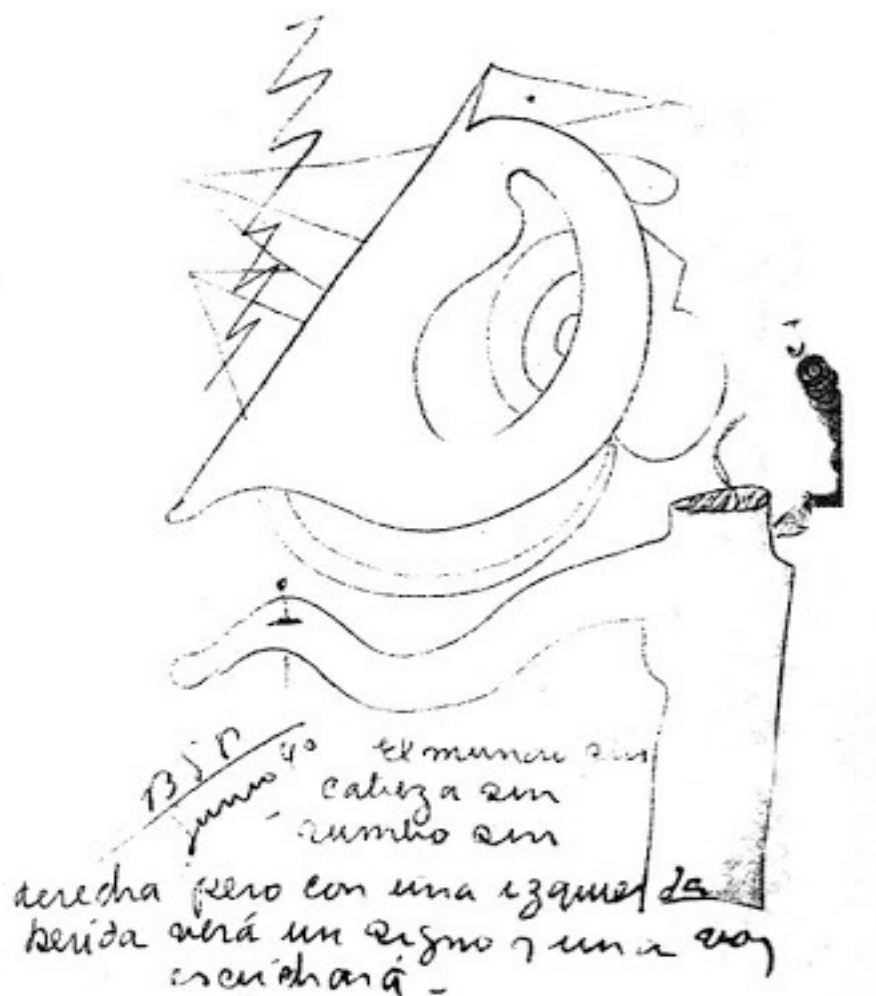 BSP
junio 40
El mundo sin
cabeza sin
rumbo sin
derecha pero con una izquierda
herida verá un signo y una voz
escuchará -